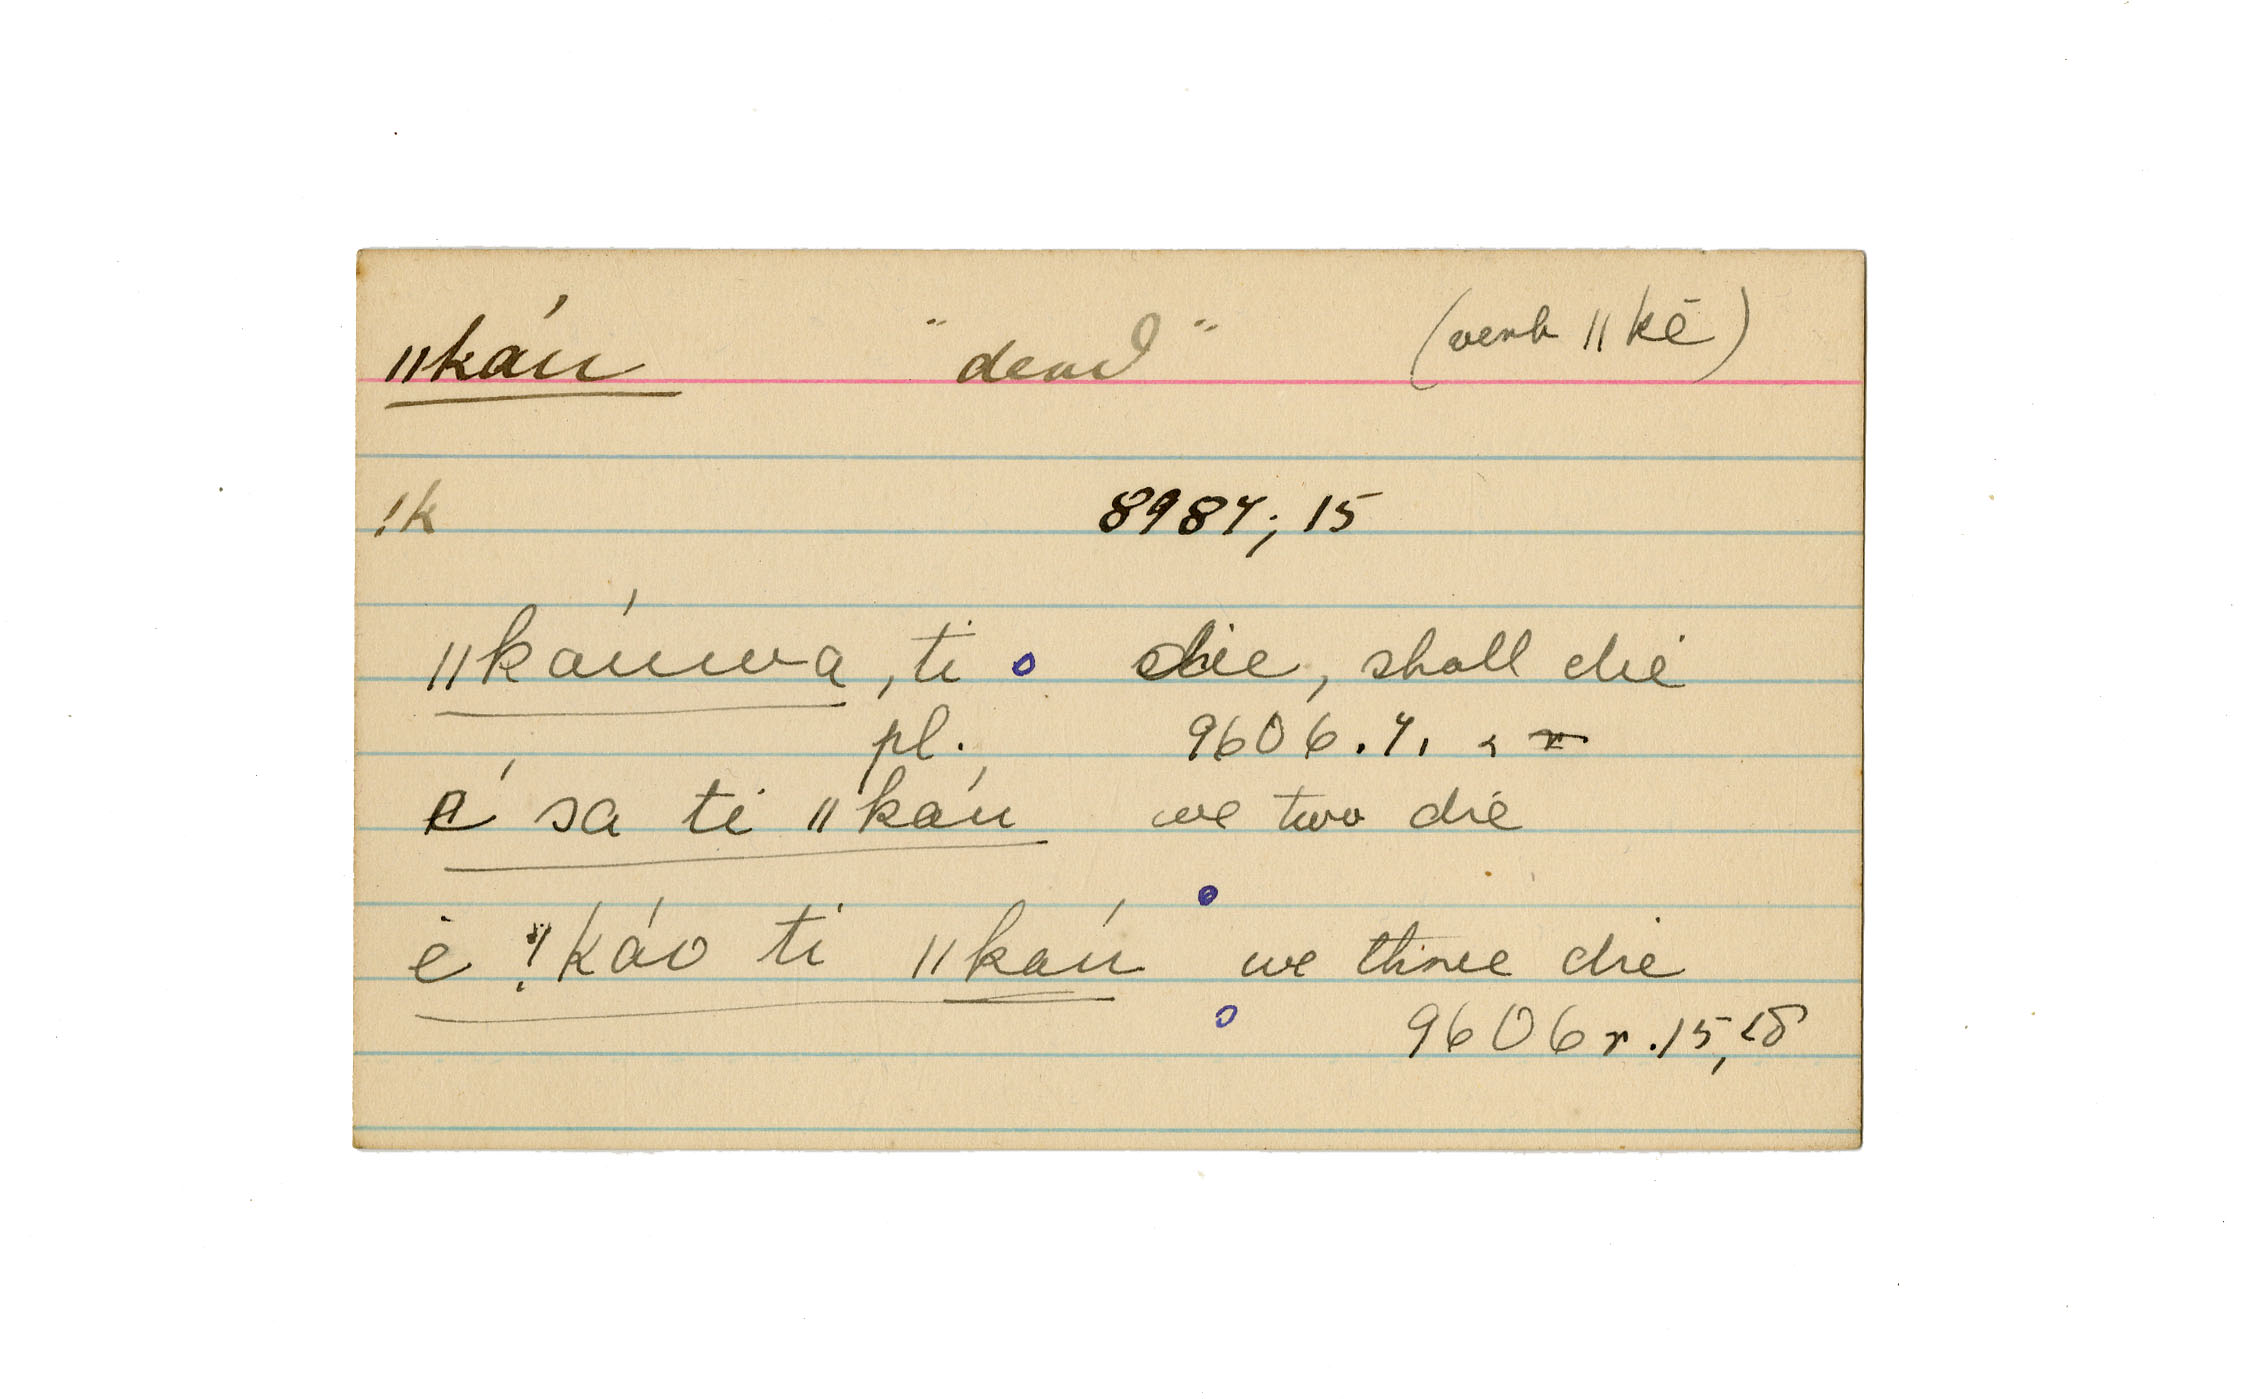 ||káu "dead" (verb ||kē)
!k 8984; 15
||káuwa, ti die, shall die
pl. 9606.4,
é sa ti ||káu we two die
e !káo ti ||káu we three die
9606r.15,18